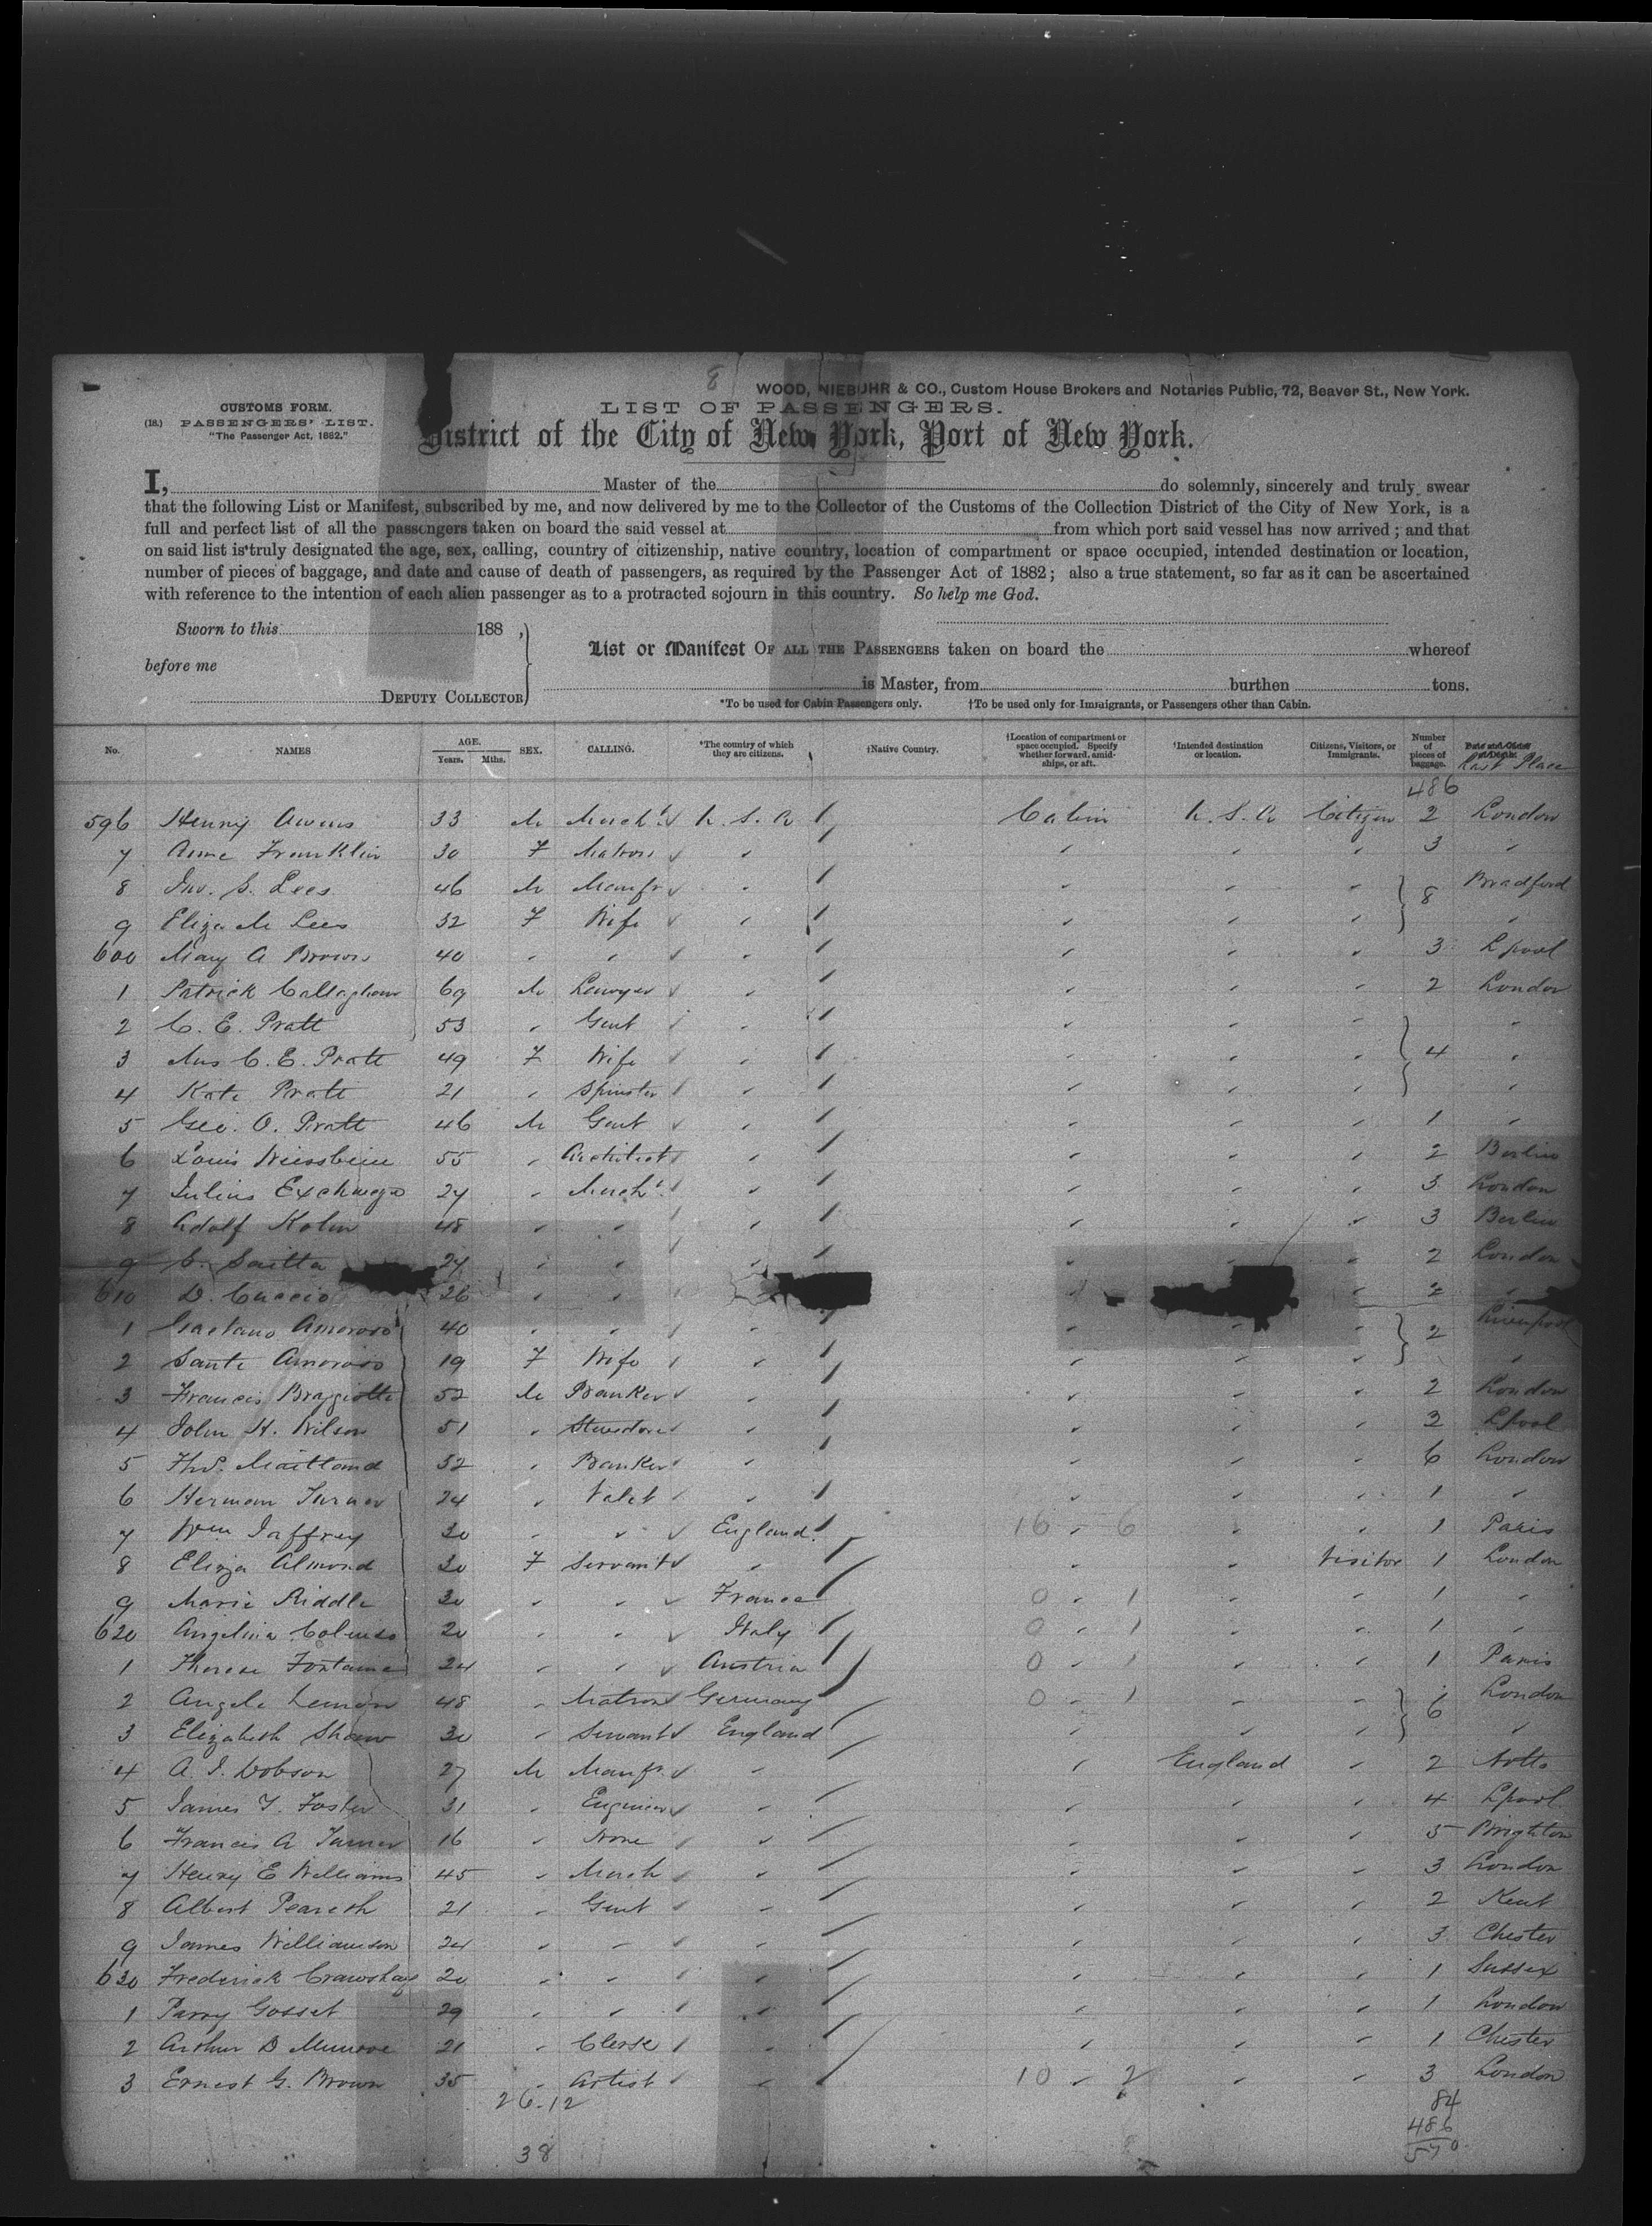 8
WOOD, NIEBUHR & CO., Custom House Brokers and Notaries Public, 72, Beaver St., New York.
CUSTOMS FORM.
(18.) PASSENGERS' LIST.
"The Passenger Act, 1882."
LIST OF PASSENGERS.
District of the City of New York, Port of New York.
I, Master of the do solemnly, sincerely and truly swear
that the following List or Manifest, subscribed by me, and now delivered by me to the Collector of the Customs of the Collection District of the City of New York, is a
full and perfect list of all the passengers taken on board the said vessel at from which port said vessel has now arrived; and that
on said list is truly designated the age, sex, calling, country of citizenship, native country, location of compartment or space occupied, intended destination or location,
number of pieces of baggage, and date and cause of death of passengers, as required by the Passenger Act of 1882; also a true statement, so far as it can be ascertained
with reference to the intention of each alien passenger as to a protracted sojourn in this country. So help me God.
Sworn to this 188 ,
before me
DEPUTY COLLECTOR
List or Manifest OF ALL THE PASSENGERS taken on board the whereof
is Master, from burthen tons.
*To be used for Cabin Passengers only. †To be used only for Immigrants, or Passengers other than Cabin.
No. NAMES AGE. Years. Mths. SEX. CALLING. *The country of which they are citizens. †Native Country. †Location of compartment or space occupied. Specify whether forward, amidships, or aft. †Intended destination or location. Citizens, Visitors, or Immigrants. Number of pieces of baggage. Date and Cause of Death. Last Place
486
596 Henry Owens 33 M Mercht U.S.A Cabin U.S.A Citizen 2 London
7 Anne Franklin 30 F Matron 3 "
8 Jno. S. Lees 46 M Manfr 8 Bradford
9 Eliza M Lees 32 F Wife "
600 Mary A Brown 40 " " 3 Lpool
1 Patrick Callaghan 69 M Lawyer 2 London
2 C. E. Pratt 53 " Gent "
3 Mrs C. E. Pratt 49 F Wife 4 "
4 Kate Pratt 21 " Spinster "
5 Geo. O. Pratt 46 M Gent 1 "
6 Louis Weissbein 55 " Architect 2 Berlin
7 Julius 27 " Mercht 3 London
8 Adolf Kohn 48 " " 3 Berlin
9 S. Saitta 27 " " 2 London
610 D. Cuccio 26 " " 2 "
1 Gaetano Amoroso 40 " " 2 Liverpool
2 Santi Amoroso 19 F Wife "
3 Francis Braggiotti 52 M Banker 2 London
4 John H. Wilson 51 " Stevedore 2 Lpool
5 Thos. Maitland 52 " Banker 6 London
6 Herman Turner 24 " Valet 1 "
7 Wm Jaffrey 30 " " England 16 - 6 1 Paris
8 Eliza Almond 30 F Servant " Visitor 1 London
9 Marie Riddle 30 " " France 0 - 1 1 "
620 Angelina 20 " " Italy 0 - 1 1 "
1 Therese Fontaine 24 " " Austria 0 - 1 1 Paris
2 Angele 48 " Matron Germany 0 - 1 6 London
3 Elizabeth Shaw 30 " Servant England "
4 A. J. Dobson 27 M Manfr " England 2 Notts
5 James T. Foster 31 " Engineer 4 Lpool
6 Francis A Turner 16 " None 5 Brighton
7 Henry E Williams 45 " Merch 3 London
8 Albert Peareth 21 " Gent 2 Kent
9 James Williamson 24 " " 3 Chester
630 Frederick Crawshay 20 " " 1 Sussex
1 Parry Gosset 29 " " 1 London
2 Arthur D Munroe 21 " Clerk 1 Chester
3 Ernest G. Brown 35 " Artist 10 - 2 3 London
26.12 84
486
38 570